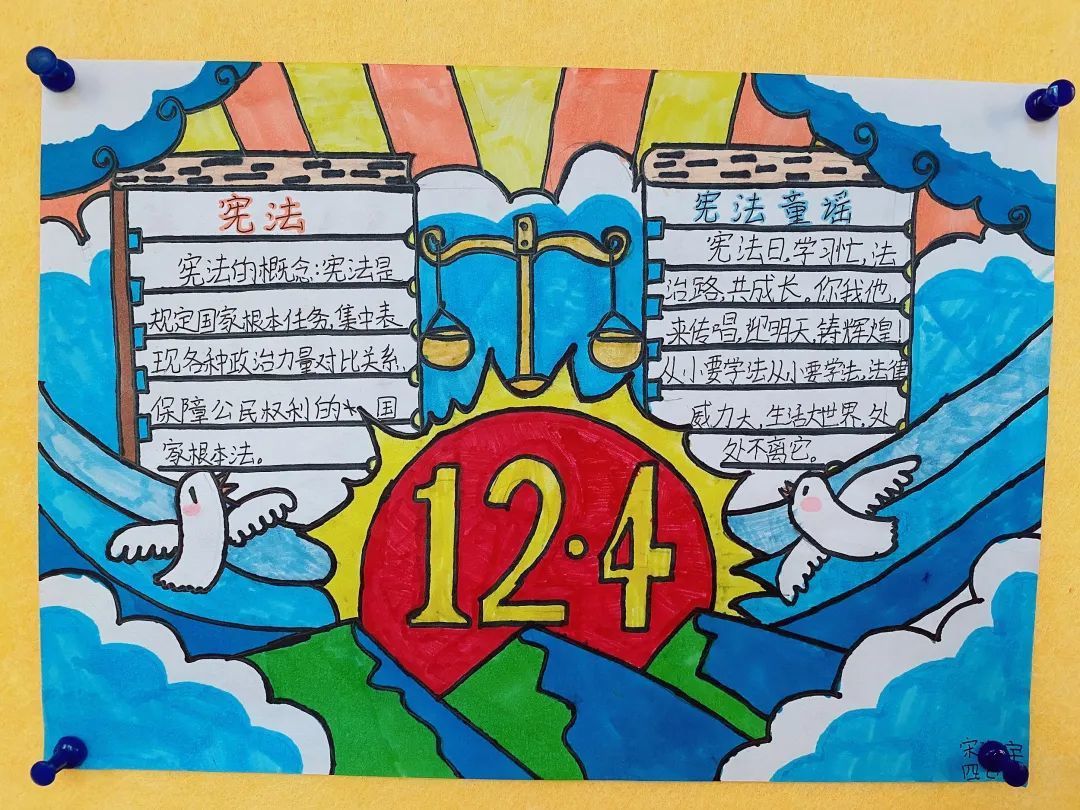 宪法
宪法的概念:宪法是
规定国家根本任务,集中表
现各种政治力量对比关系,
保障公民权利的 国
家根本法。
宪法童谣
宪法日,学习忙,法
治路,共成长。你我他,
来传唱,迎明天,铸辉煌!
从小要学法从小要学法,法律
威力大,生活大世界,处
处不离它。
12·4
宋
四